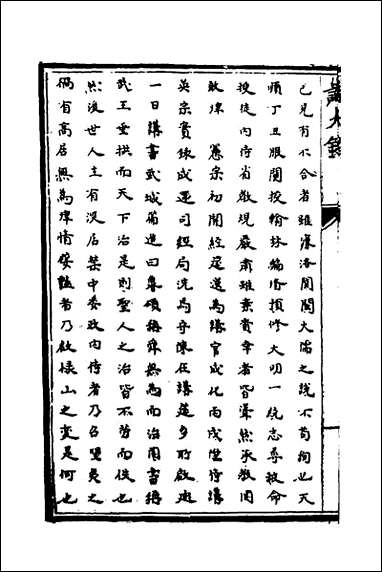 己見有不合者雖濂洛関閩大儒之說不苟徇也天
順丁丑服闋授翰林編脩預修大明一統志尋被命
授徒內侍省啟規嚴肅雖素貴幸者皆聳然承教罔
敢肆 憲宗初開經筵選為講官成化丙戌陞侍講
英宗實錄成遷司經局洗馬在講筵多所啟迪
一日講書武城篇進曰舜無為而治周書稱
武王垂拱而天下治是則聖人之治皆不勞而也
然後世人主有深居禁中委政內侍者乃召望夷之
禍有高居無為肆情豔者乃啟祿山之變是何也